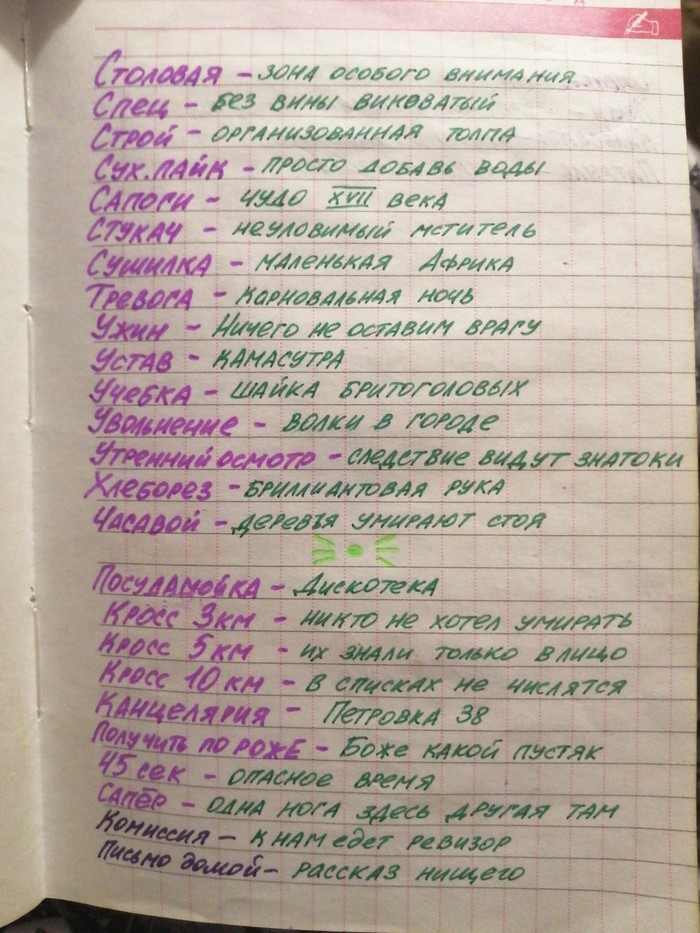 Столовая – зона особого внимания
Спец – без вины виноватый
Строй – организованная толпа
Сух.пайк – просто добавь воды
Сапоги – чудо XVII века
Стукач – неуловимый мститель
Сушилка – маленькая Африка
Тревога – Карновальная ночь
Ужин – Ничего не оставим врагу
Устав – Камасутра
Учебка – шайка бритоголовых
Увольнение – волки в городе
Утренний осмотр – следствие видут знатоки
Хлеборез – бриллиантовая рука
Часавой – деревья умирают стоя
Посудамойка – Дискотека
Кросс 3км – никто не хотел умирать
Кросс 5км – их знали только в лицо
Кросс 10 км – в списках не числятся
Канцелярия – Петровка 38
Получить по роже – Боже какой пустяк
45 сек – опасное время
Сапёр – одна нога здесь другая там
Комиссия – к нам едет ревизор
Письмо домой – рассказ нищего